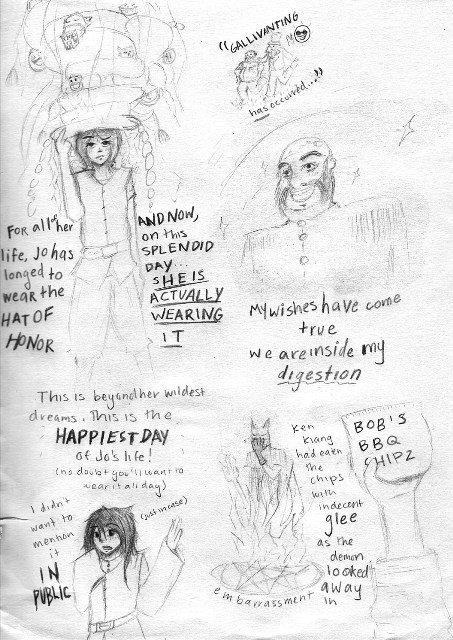 "GALLIVANTING
has occurred..."
FOR all of her
life, Jo has
longed to
wear the
HAT OF
HONOR
AND NOW,
on this
SPLENDID
DAY...
SHE IS
ACTUALLY
WEARING
IT
My wishes have come
true
we are inside my
digestion
This is beyond her wildest
dreams. This is the
HAPPIEST DAY
of Jo's life!
(no doubt you'll want to
wear it all day)
I didn't
want to
mention
it
IN
PUBLIC
(just in case)
Ken
Kiang
had eaten
the
chips
with
indecent
glee
as the
demon
looked
away
in
embarrassment
BOB'S
BBQ
CHIPZ